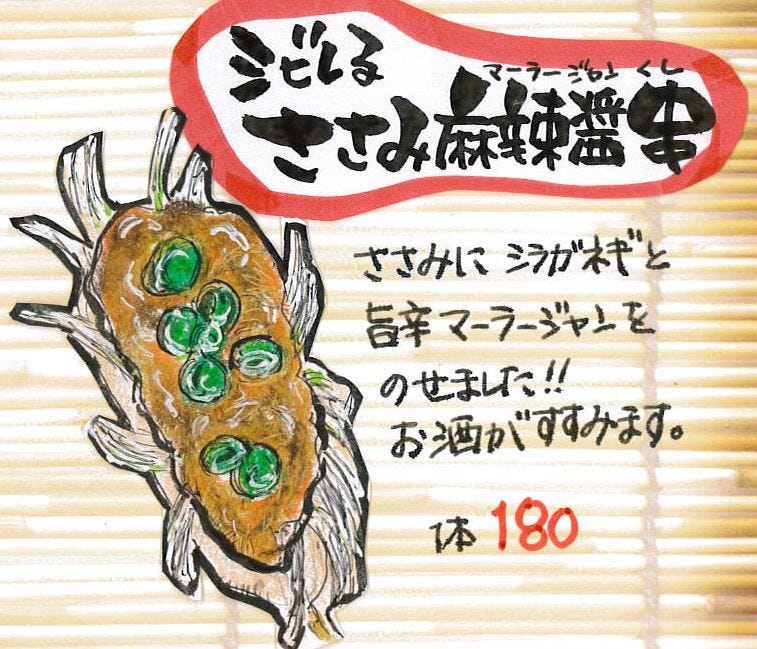 シビレる
マーラージャン くし
ささみ麻辣醤串
ささみに シラガネギと
旨辛マーラージャンを
のせました!!
お酒がすすみます。
体 180